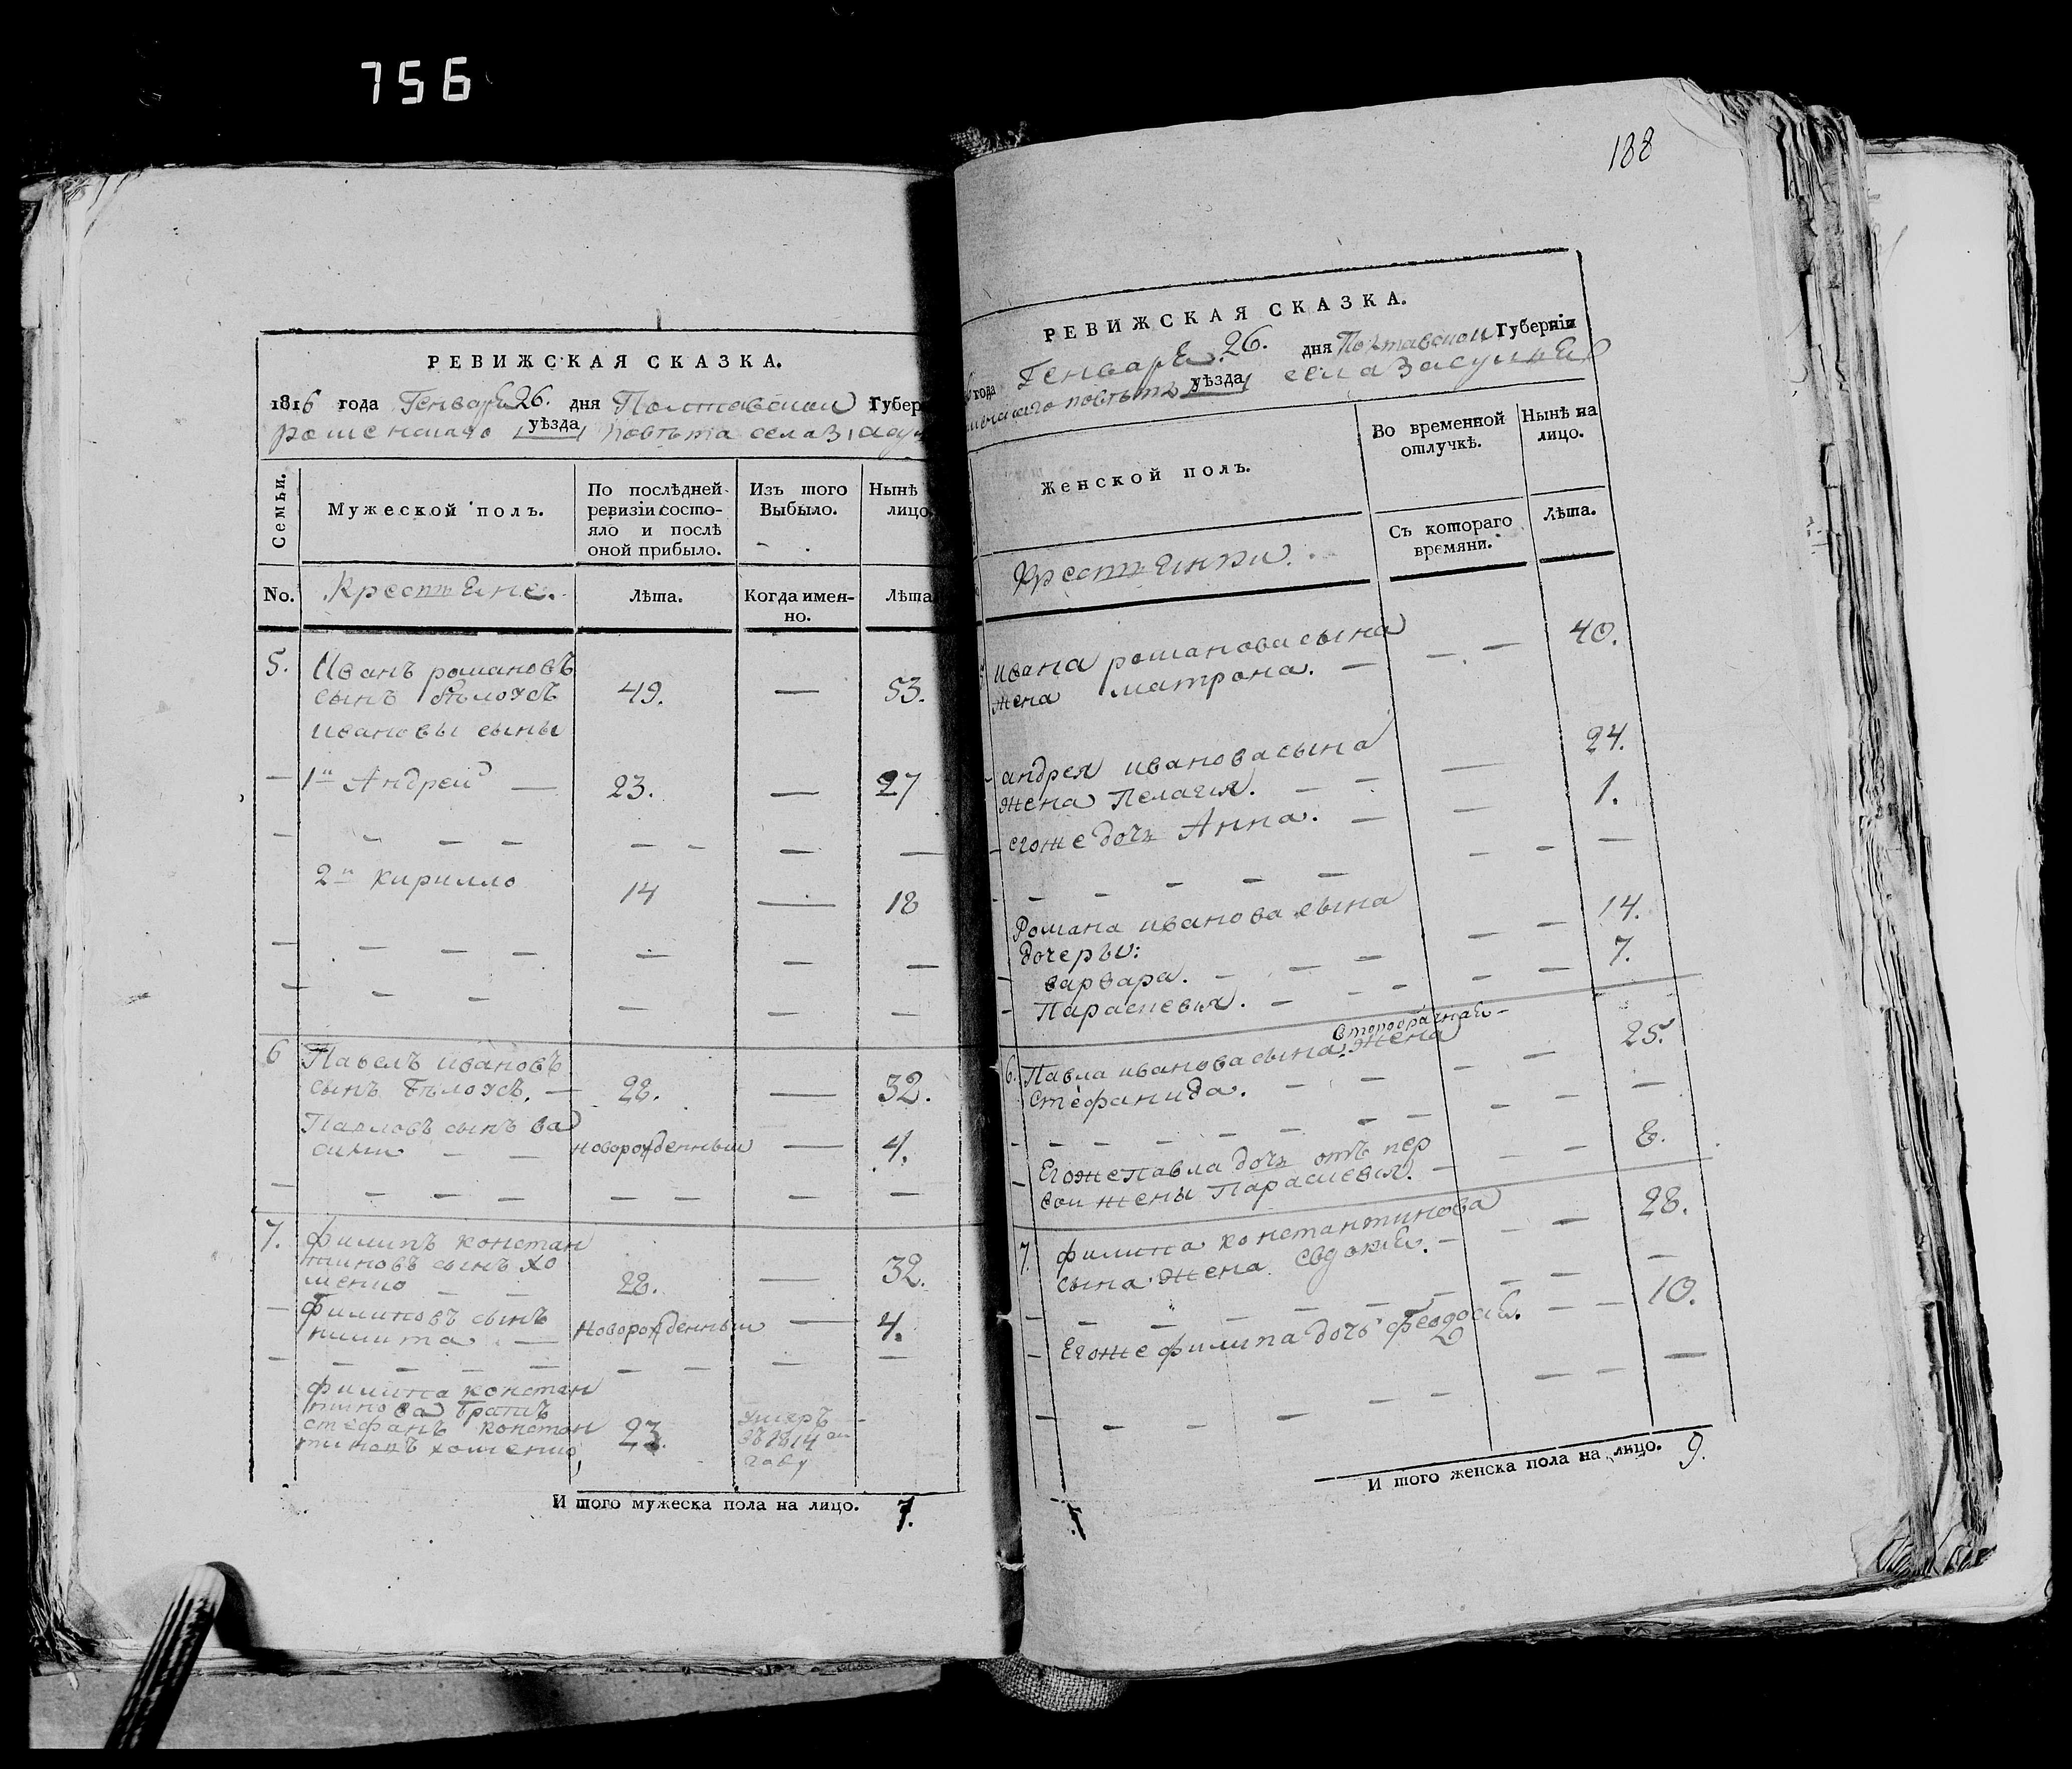 756
РЕВИЖСКАЯ СКАЗКА.
1816 года Генваря 26. дня Полтавской Губер
роменскаго уѣзда повѣта села Засу
Семьи.
Мужеской полъ.
По послѣдней
ревизіи состо-
яло и послѣ
оной прибыло.
Изъ того
Выбыло.
Нынѣ
лицо
No.
Крестьяне.
Лѣта.
Когда имен-
но.
Лѣта
5. Иванъ романовъ
сынъ бѣлоусъ 49. — 53.
ивановы сыны
— 1й Андрей — 23. — 27
2й кирилло 14 — 18
6 Павелъ ивановъ
сынъ бѣлоусъ. — 28. — 32.
Павловъ сынъ ва
силии — — новорожденный — 4.
7. филипъ констан
тиновъ сынъ хо
менко — — 28. — 32.
— Филиповъ сынъ
никита — новорожденный — 4.
филипа констан
тинова братъ
стефанъ констан
тиновъ хоменко 23. умеръ
въ 1814 ом
году
И того мужеска пола на лицо. 7.
188
РЕВИЖСКАЯ СКАЗКА.
года Генваря 26. дня Полтавской Губерніи
повѣта уѣзда села Засулья
Женской полъ.
Во временной
отлучкѣ.
Нынѣ на
лицо.
Съ котораго
времяни.
Лѣта.
Крестьянки.
ивана романова сына
жена матрона. — — — 40.
андрея иванова сына
жена Пелагия. — — — 24.
егоже дочь Анна. — — 1.
Романа иванова сына
дочеры:
варвара. — — — 14.
Параскевья. — — — 7.
второбрачная
6. Павла иванова сына жена
стефанида. — — — 25.
Егоже павла дочь отъ пер
вои жены Параскевья. — — 8.
7 филипа константинова
сына жена евдокия. — — 28.
— Егоже филипа дочь феодосия. — — 10.
И того женска пола на лицо. 9.